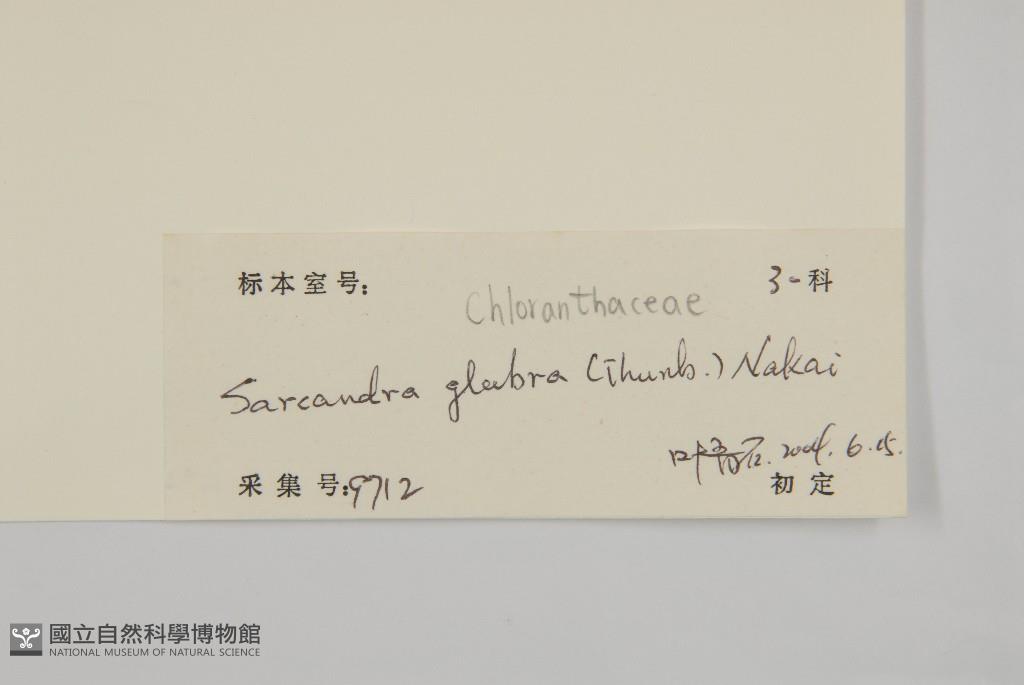 标本室号: 3-科
Chloranthaceae
Sarcandra glabra (Thunb.) Nakai
叶 2004.6.15.
采集号:9712 初定
國立自然科學博物館
NATIONAL MUSEUM OF NATURAL SCIENCE